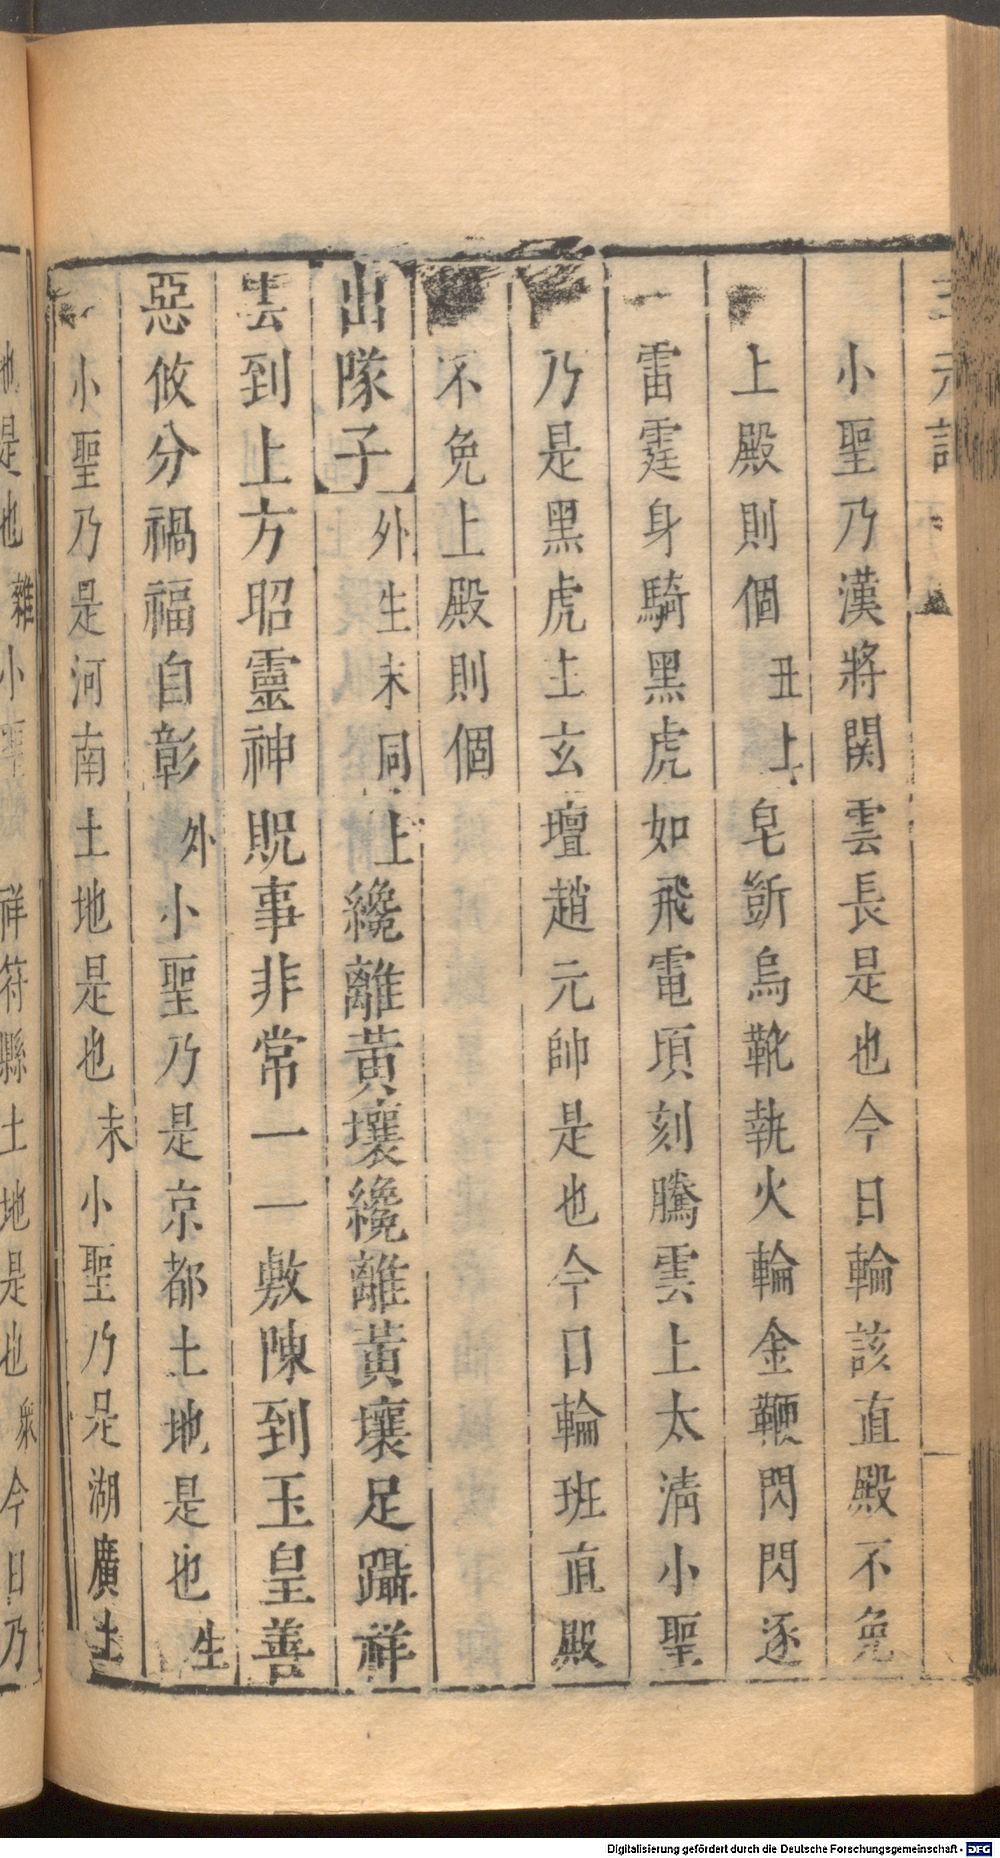 三元記
小聖乃漢將関雲長是也今日輪該直殿不免
上殿則個 丑上 皂斵烏靴執火輪金鞭閃閃逐
雷霆身騎黑虎如飛電頃刻騰雲上太淸小聖
乃是黑虎土玄壇趙元帥是也今日輪班直殿
不免上殿則個
出隊子 外生末同上 纔離黃壤纔離黃壤足躡祥
雲到上方昭靈神貺事非常一一敷陳到玉皇善
惡攸分禍福自彰 外 小聖乃是京都土地是也 生
小聖乃是河南土地是也 末 小聖乃是湖廣土
地是也 雜 小聖 祥符縣土地是也 衆 今日乃
Digitalisierung gefördert durch die Deutsche Forschungsgemeinschaft - DFG